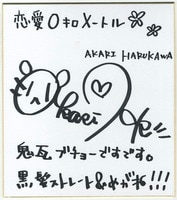 恋愛0キロメートル
AKARI HARUKAWA
Akari
鬼瓦ブチョーですです。
黒髪ストレート&めがね!!!